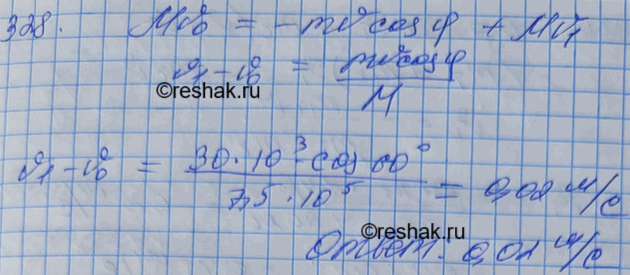 328. Mv₀ = -mv cos φ + Mv₁
v₁-v₀ = mv cos φ / M
©reshak.ru
v₁-v₀ = 30·10³·cos 60° / 7,5·10⁵ = 0,02 м/с
©reshak.ru
Ответ: 0,02 м/с